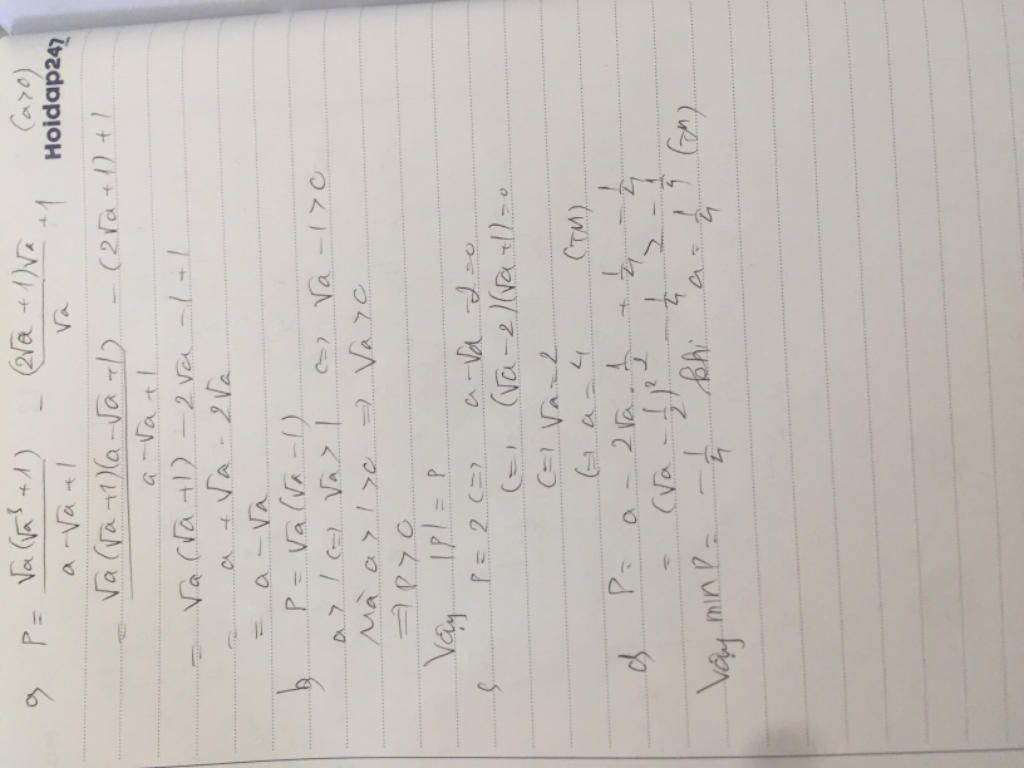 a, P = √a(√a³ + 1) / (a - √a + 1) - (2√a + 1)√a / √a + 1 (a > 0)
Hoidap247
= √a(√a + 1)(a - √a + 1) / (a - √a + 1) - (2√a + 1) + 1
= √a(√a + 1) - 2√a - 1 + 1
= a + √a - 2√a
= a - √a
b, P = √a(√a - 1)
a > 1 (=) √a > 1 (=) √a - 1 > 0
Mà a > 1 > 0 => √a > 0
=> P > 0
Vậy |P| = P
c, P = 2 (=) a - √a - 2 = 0
(=) (√a - 2)(√a + 1) = 0
(=) √a = 2
(=) a = 4 (TM)
d, P = a - 2√a.1/2 + 1/4 - 1/4
= (√a - 1/2)² - 1/4 ≥ -1/4
Vậy min P = -1/4 khi a = 1/4 (TM)